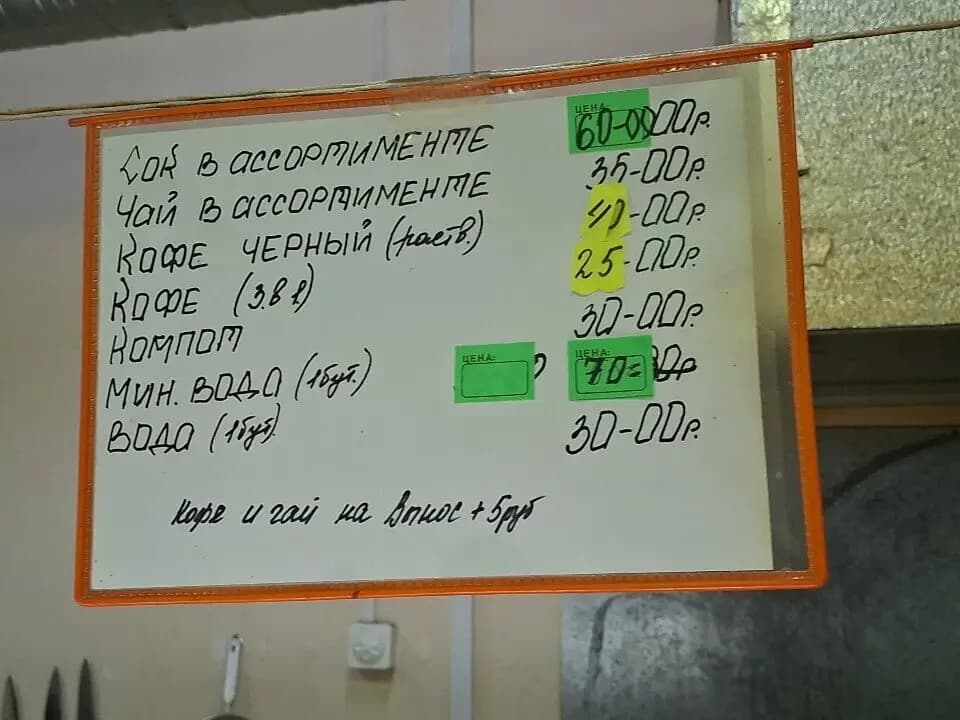 Сок в ассортименте ЦЕНА: 60-00 00р.
Чай в ассортименте 35-00р.
Кофе черный (раств.) 40-00р.
Кофе (3 в 1) 25-00р.
Компот 30-00р.
Мин. вода (1бут.) ЦЕНА: ЦЕНА: 70=
Вода (1бут) 30-00р.
Кофе и чай на вынос +5руб